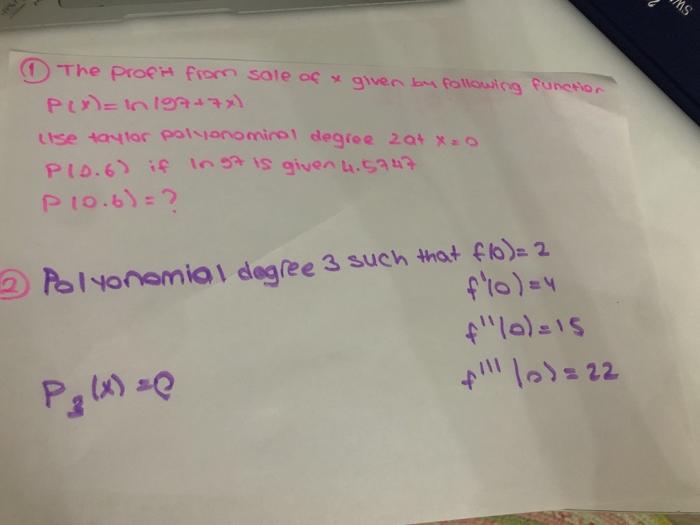 ① The profit from sale of x given by following function
P(x)=ln(97+7x)
Use taylor polyonominal degree 2 at x=0
P(0.6) if ln 97 is given 4.5747
P(0.6)=?
② Polyonomial degree 3 such that f(0)=2
f'(0)=4
f''(0)=15
f'''(0)=22
P₃(x)=?